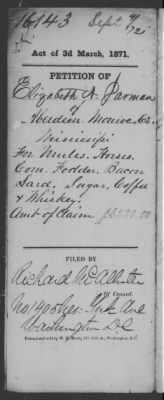 16143 Sept 9/72
Act of 3d March, 1871.
PETITION OF
Elizabeth A. Jarman
of
Aberdeen Monroe, Co.
Mississippi
For Mules. Horses.
Corn. Fodder, Bacon
Lard, Sugar, Coffee
& Whiskey.
Amt of Claim
FILED BY
Richard McAllister
Of Counsel.
No 1408 New York Ave
Washington DC